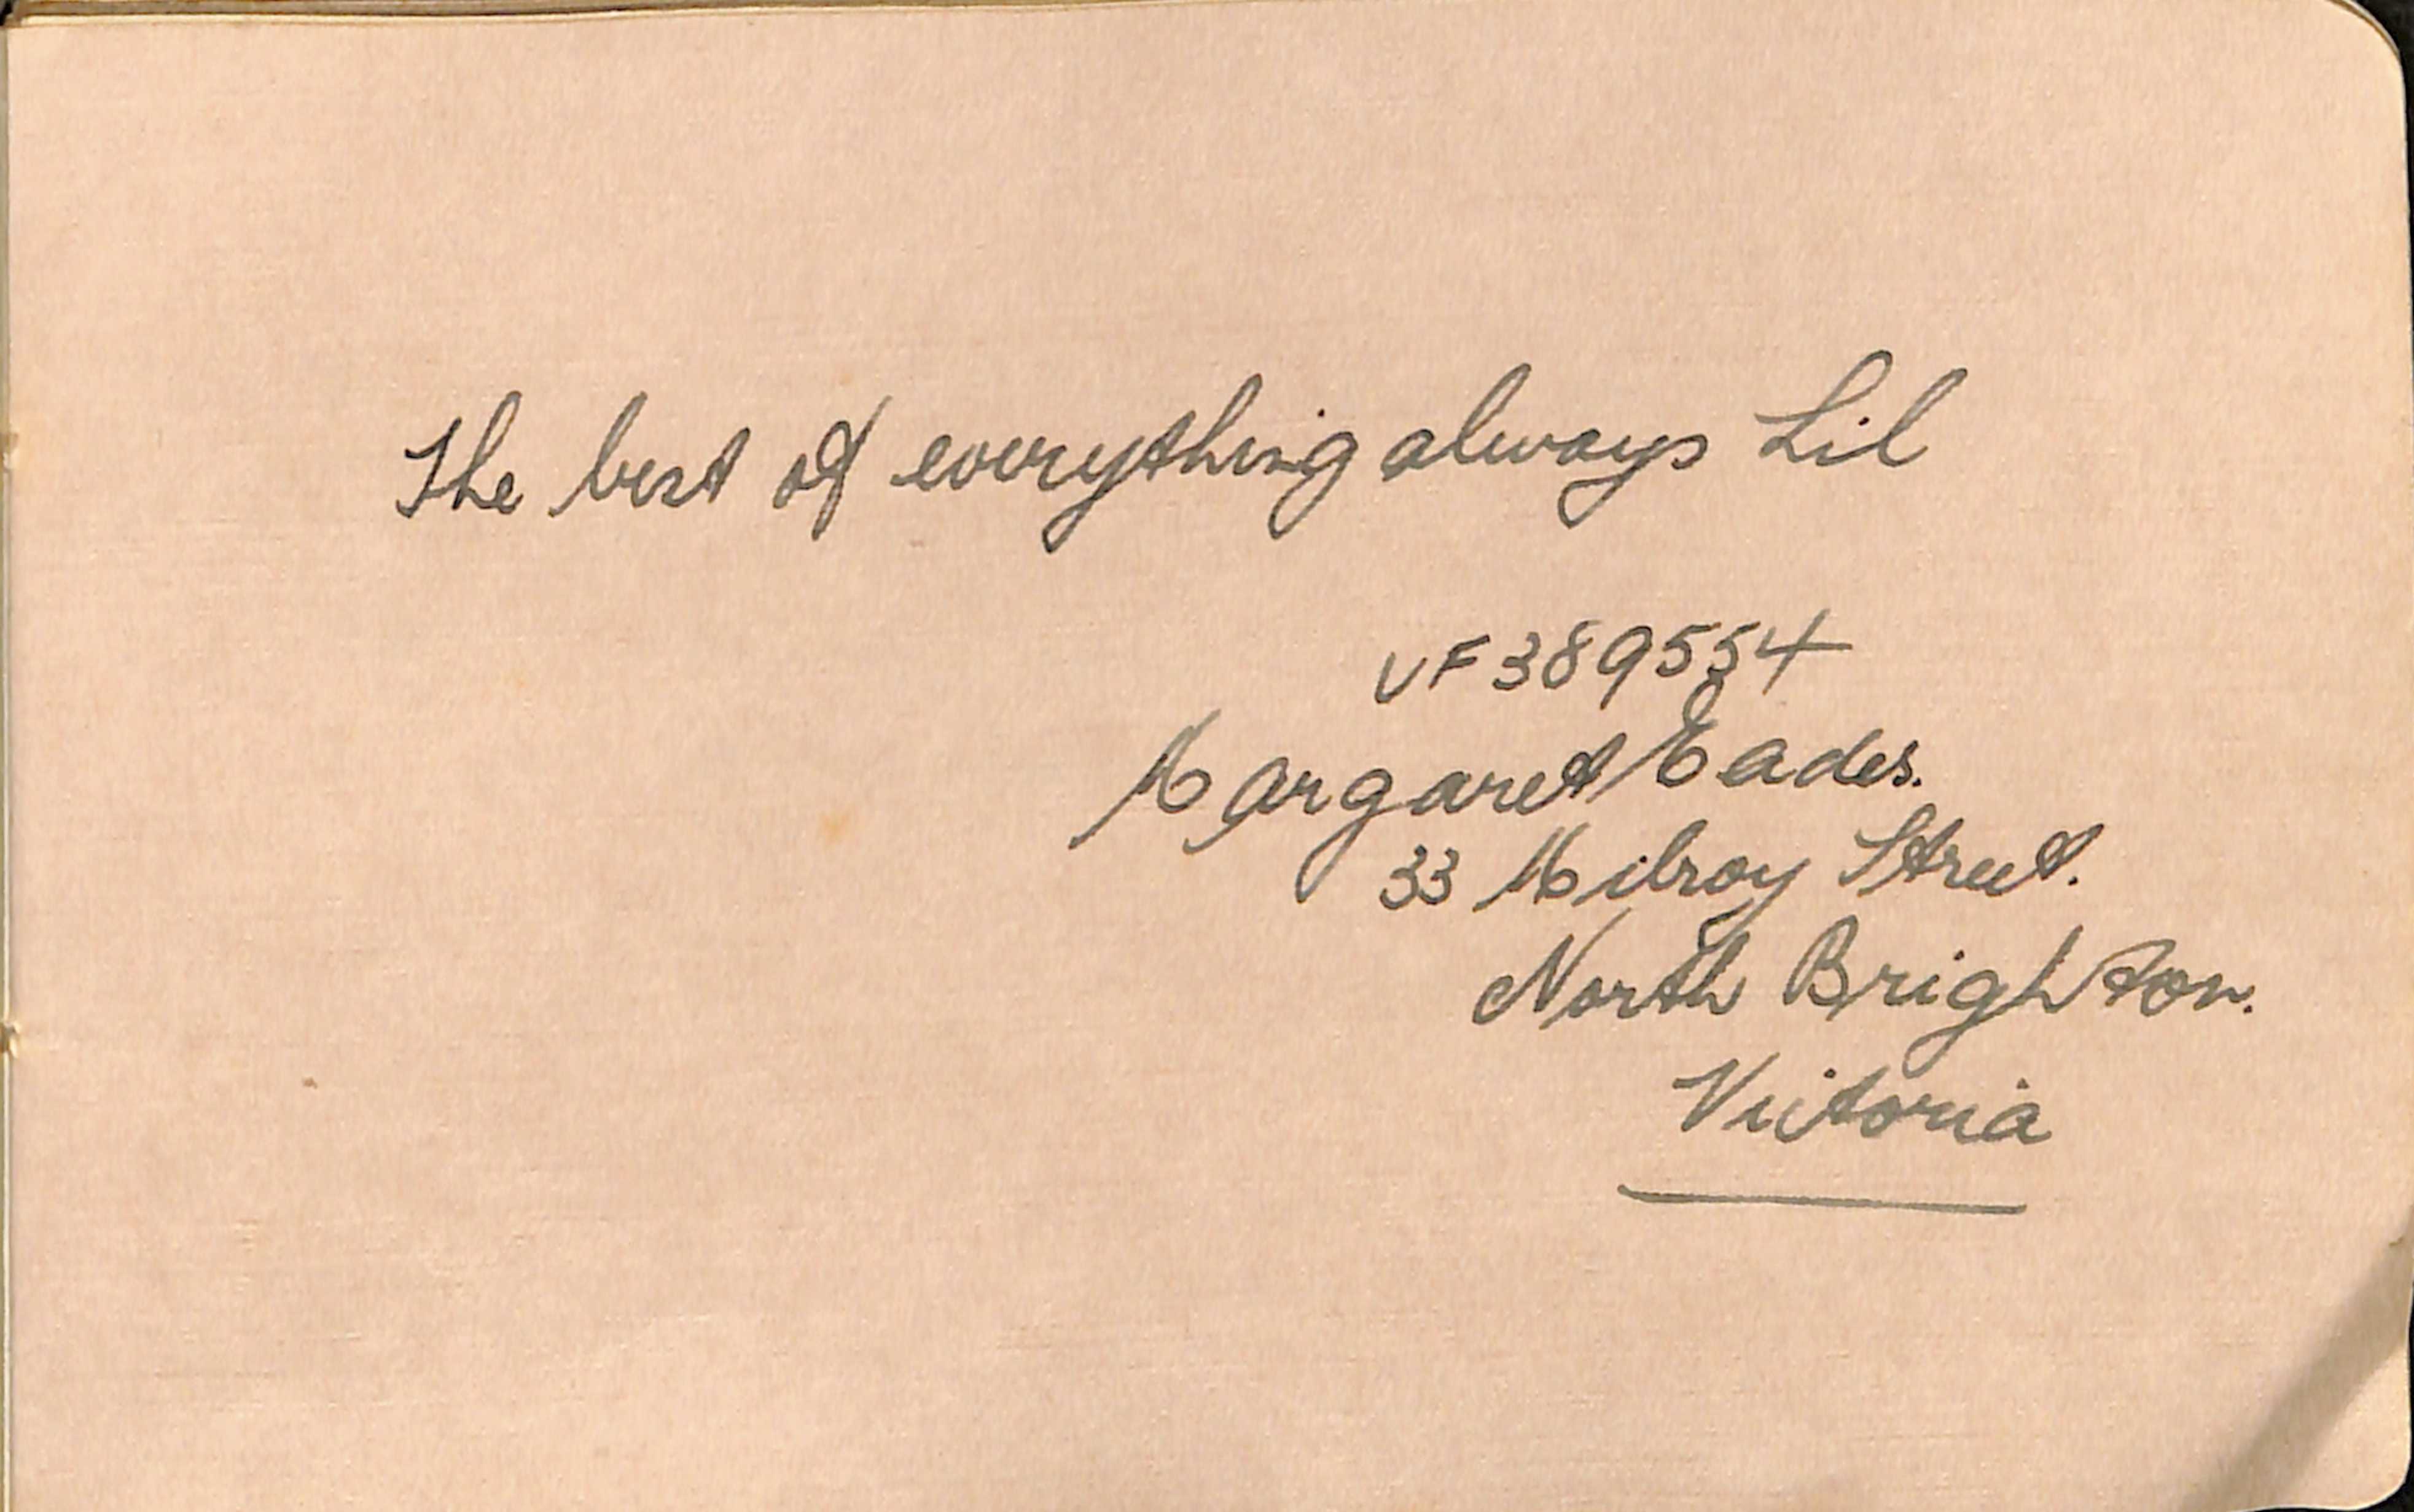 The best of everything always Lil
VF389554
Margaret Eades.
33 Milroy Street.
North Brighton.
Victoria